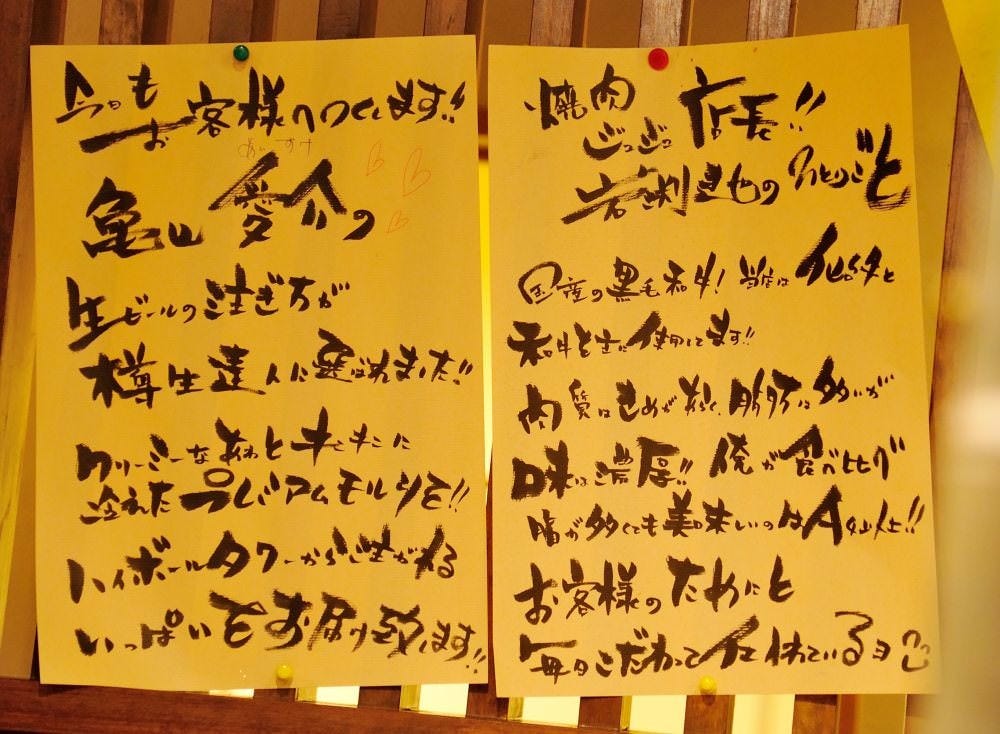 今日もお客様へつくします!!
あいすけ
亀山 愛介の
生ビールの注ぎ方が
樽生達人に選ばれました!!
クリーミーなあわとキンキンに
冷えたプレミアムモルツを!!
ハイボールタワーから
いっぱいをお届け致します!!
焼肉
ジュゴジュゴ 店長!!
ひとりごと
国産の黒毛和牛! 当店は仙台牛と
和牛を主に使用してます!!
肉質はきめが細く、脂肪は多いが
味は濃厚!! 俺が食べ比べ
脂が多くても美味いのはA
お客様のためにと
毎日こだわって仕入れているヨ